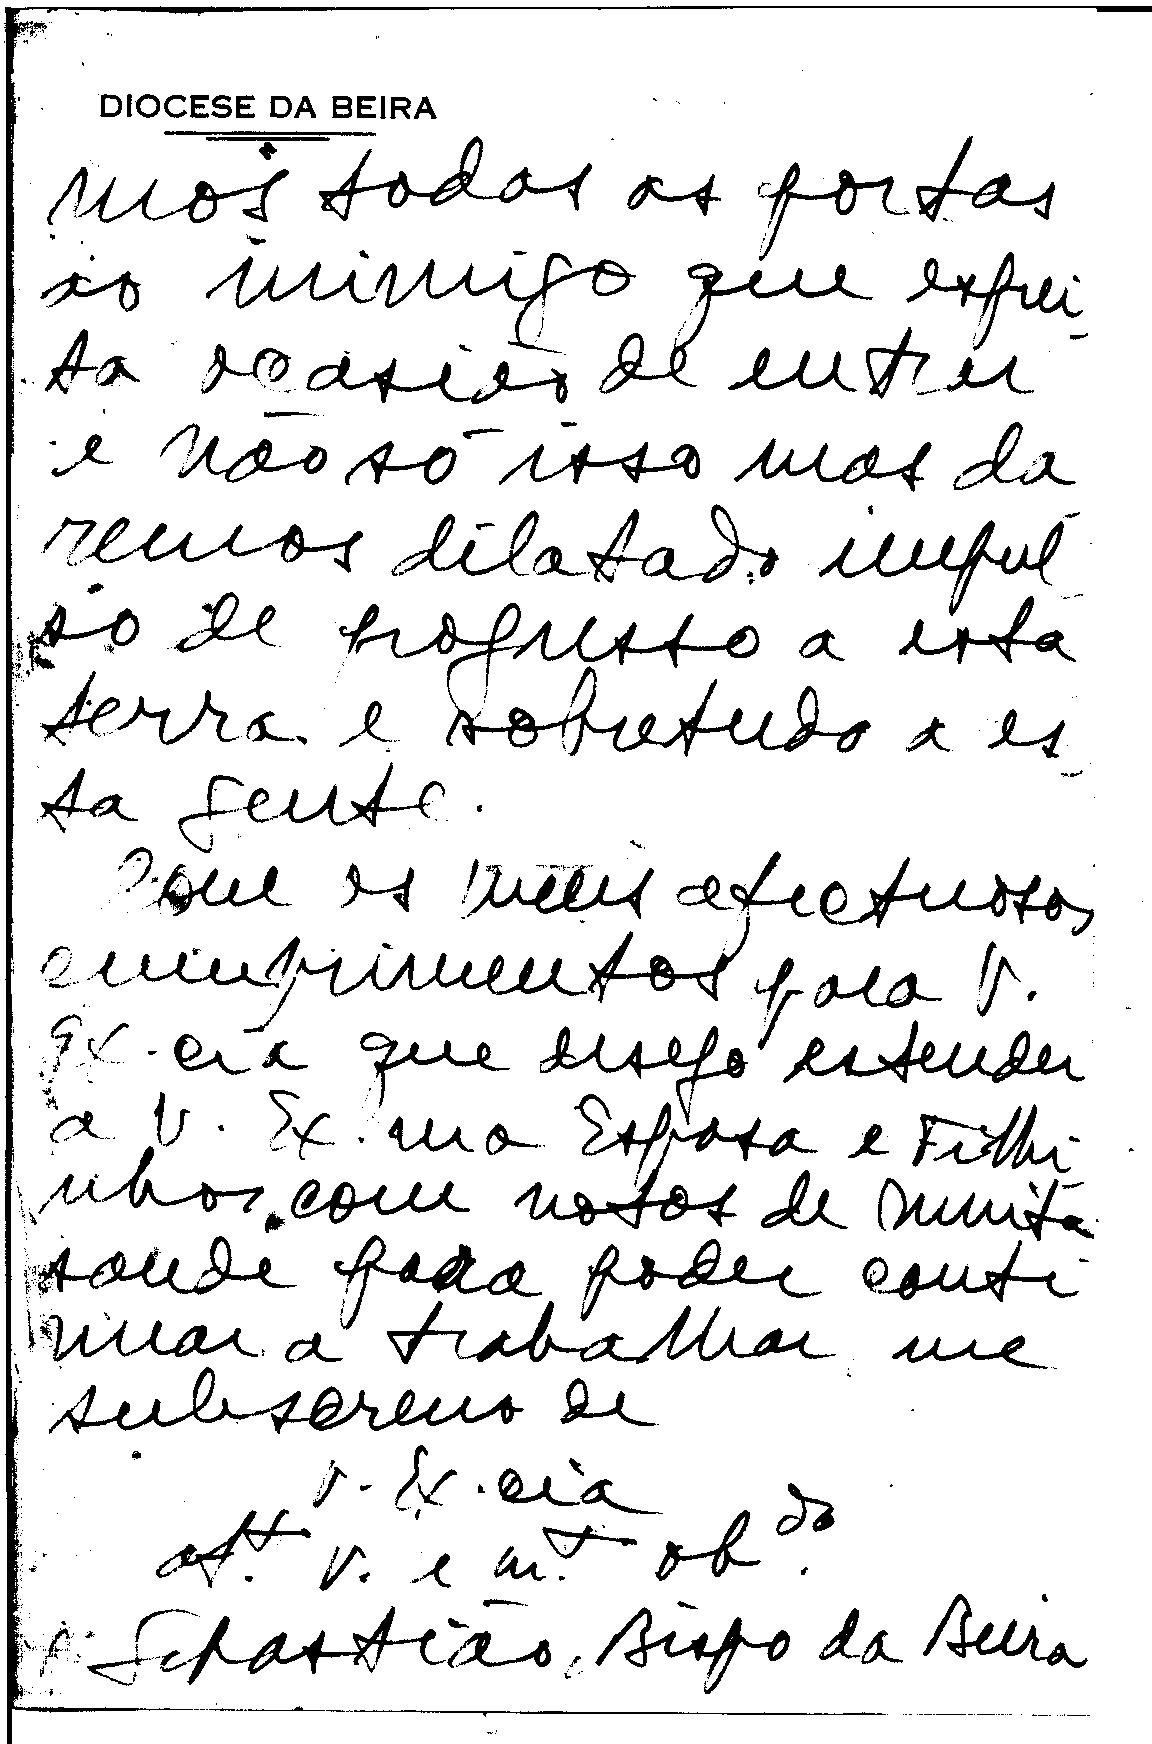 DIOCESE DA BEIRA
mos todas as portas
ao inimigo que esprei-
ta ocasião de entrar
e não só isso mas da
remos dilatado impul-
so de progresso a esta
terra e sobretudo a es-
ta gente.
Com os meus afectuosos
cumprimentos para V.
Ex.cia que desejo estender
a V. Ex.ma Esposa e Filhi-
nhos, com votos de muita
saude para poder conti
nuar a trabalhar me
subscrevo de
V. Ex.cia
at.to V. e m.to ob.do
Sebastião, Bispo da Beira